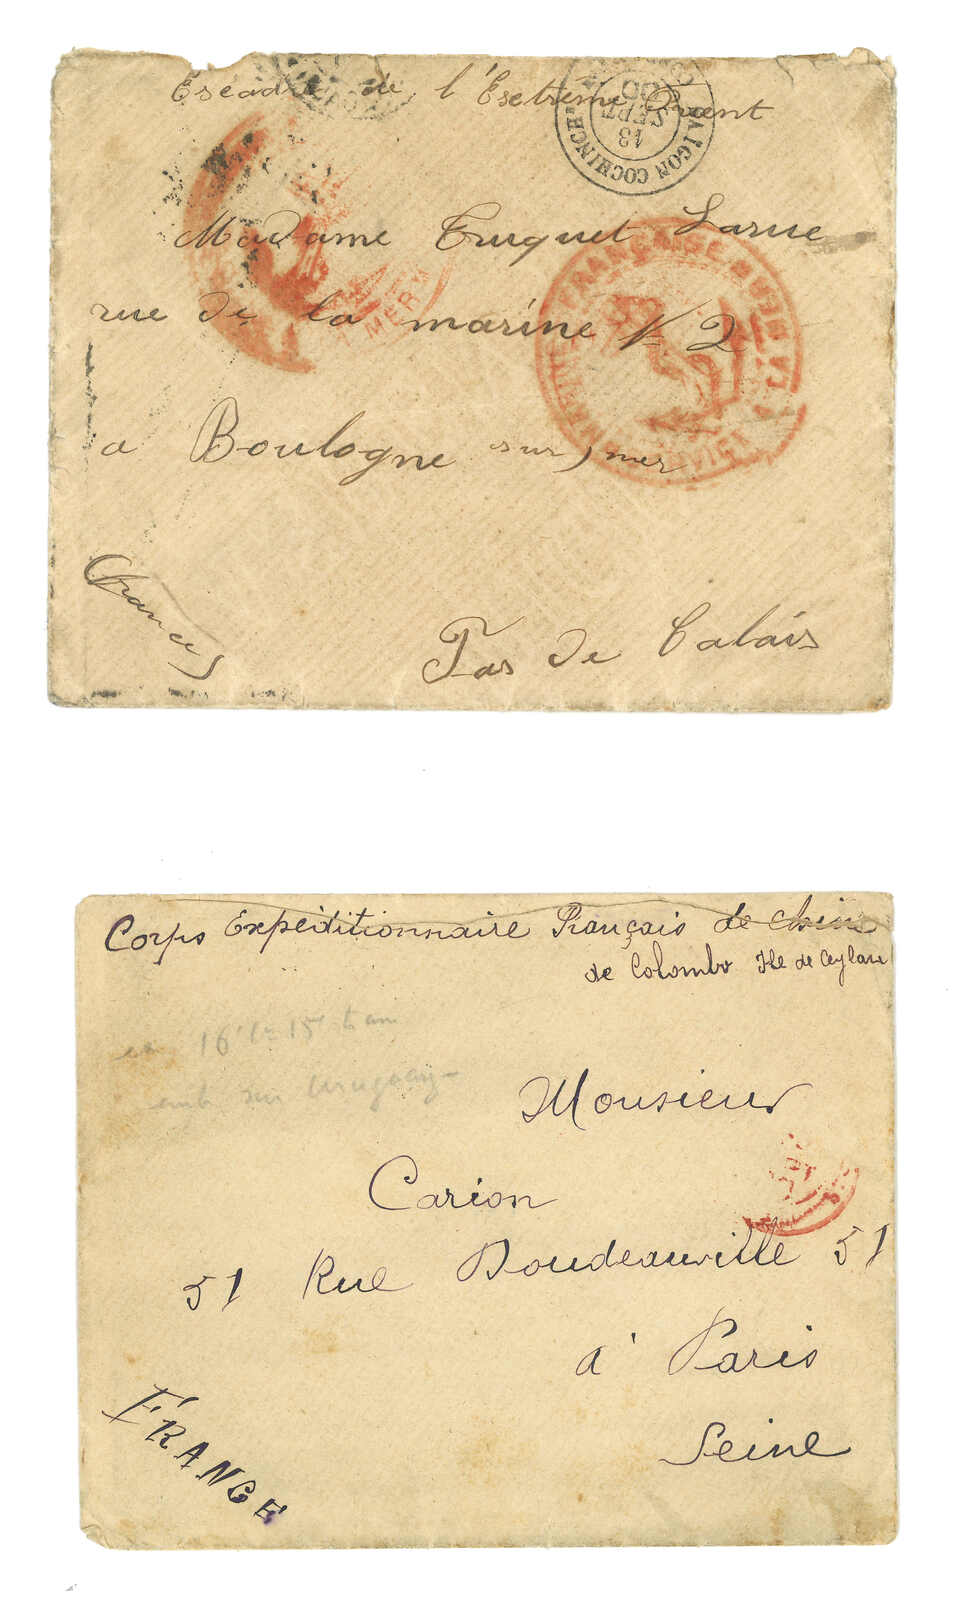 Escadre de l'Esctrême Orient
SAIGON COCHINCH.
13
SEPT
00
Madame Turquet Larue
MER
rue de la marine N= 2
FRANÇAISE
a Boulogne sur mer
(France)
Pas de Calais
Corps Expéditionnaire Français de Chine
de Colombo Ile de Ceylan
16 15
sur Uruguay
Monsieur
Carion
51 Rue Doudeauville 51
à Paris
Seine
FRANCE